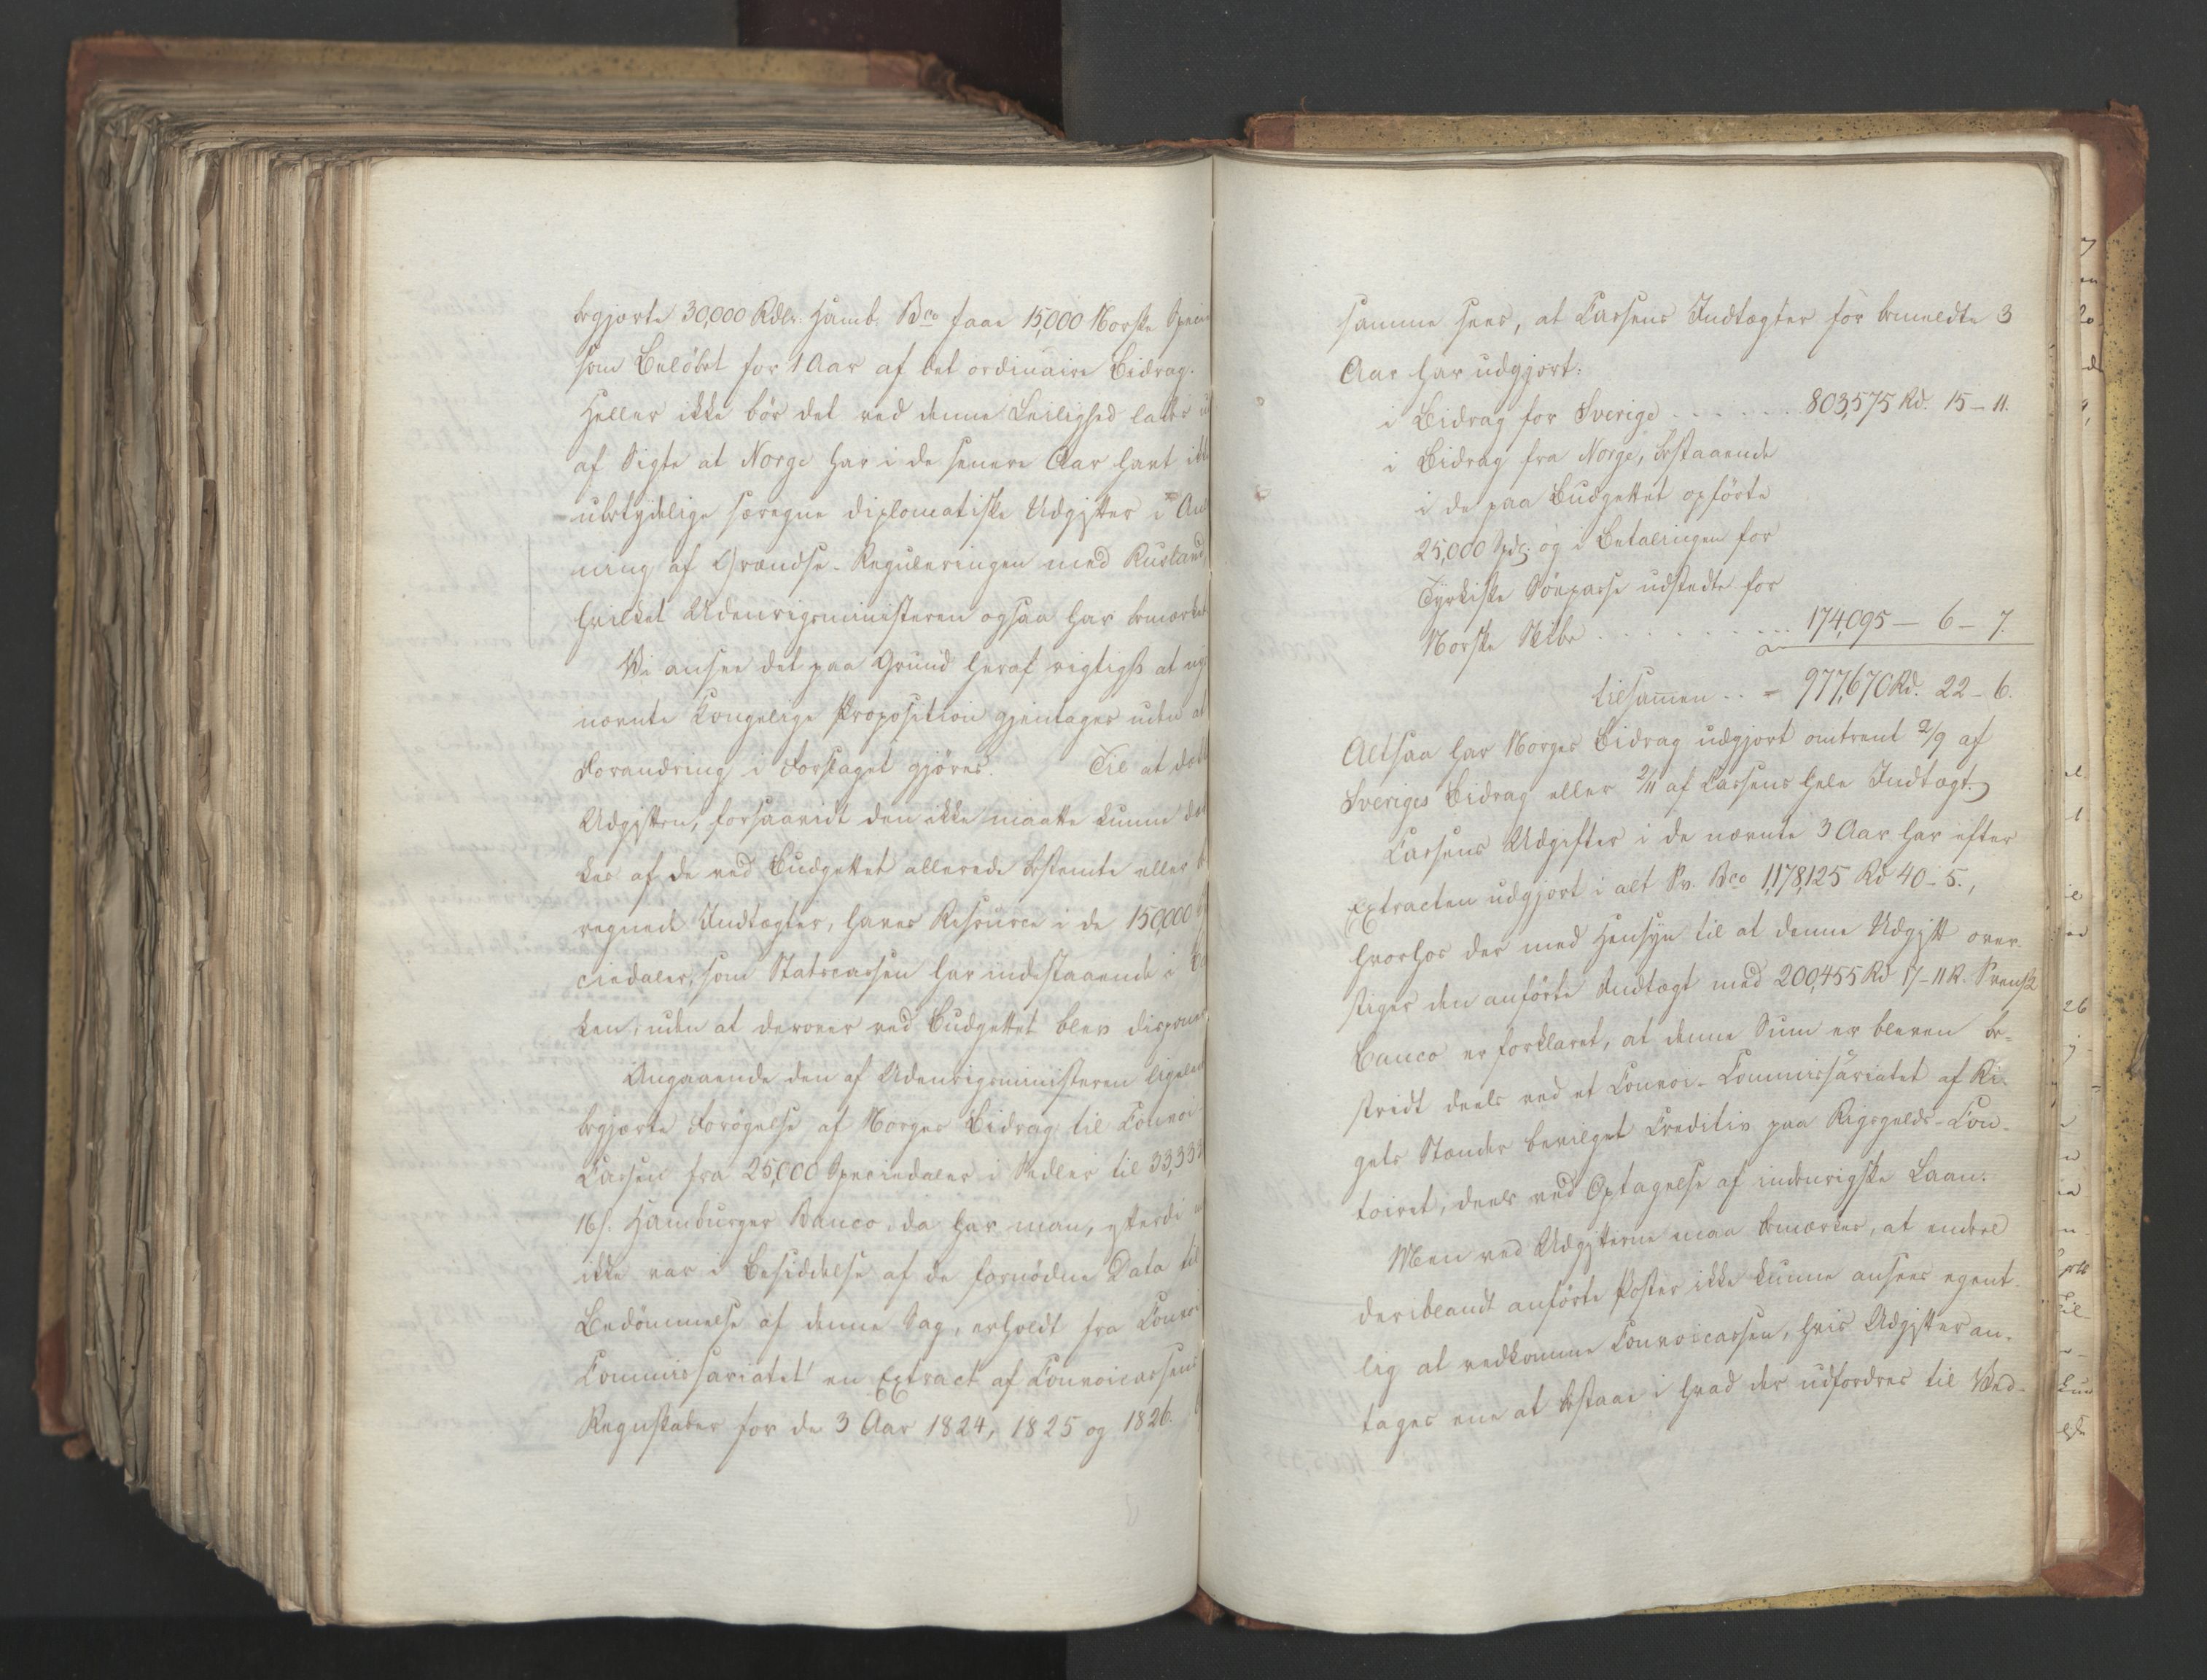 begjærte 30,000 Rdlr. Hamb. Bco faae 15,000 Norske Specie
som Beløbet for 1 Aar af det ordinaire Bidrag.
Heller ikke bør det ved denne Leilighed lades u
af Sigte at Norge har i de senere Aar havt ikke
ubetydelige særegne diplomatiske Udgifter i An
ning af Grændse-Reguleringen med Rusland,
hvilket Udenrigsministeren ogsaa har bemærket
Vi ansee det paa Grund heraf rigtigst at
nævnte Kongelige Proposition gjentages uden at
Forandring i Forslaget gjøres. Til at dække
Udgiften, forsaavidt den ikke maatte kunne dæk
kes af de ved Budgettet allerede bestemte eller
regnede Indtægter, haves Resource i de 150,000
ciedaler, som Statscassen har indestaaende i Ban
ken, uden at derover ved Budgettet blev dispone
Angaaende den af Udenrigsministeren ligeled
begjærte Forøgelse af Norges Bidrag til Convoi
Cassen fra 25,000 Speciedaler i Sedler til 33,333
16 s. Hamburger Banco, da har man, efterdi
ikke var i Besiddelse af de fornødne Data til
Bedømmelse af denne Sag, erholdt fra Convoi
Commissariatet en Extract af Convoicassens
Regnskaber for de 3 Aar 1824, 1825 og 1826.
samme sees, at Cassens Indtægter for bemeldte 3
Aar har udgjort:
i Bidrag for Sverige . . . . . . 803,575 Rd. 15 - 11.
i Bidrag fra Norge, bestaaende
i de paa Budgettet opførte
25,000 Spd. og i Betalingen for
Tyrkiske Søepasse udstedte for
Norske Skibe . . . . . . . . . . 174,095 - 6 - 7.
tilsamen . . - 977,670 Rd. 22 - 6.
Altsaa har Norges Bidrag udgjort omtrent 2/9 af
Sveriges Bidrag eller 2/11 af Cassens hele Indtægt.
Cassens Udgifter i de nævnte 3 Aar har efter
Extracten udgjort i alt Sv. Bco 1,178,125 Rd 40 - 5.,
hvorhos der med Hensyn til at denne Udgift over-
stiger den anførte Indtægt med 200,455 Rd 17 - 11 R. Svensk
Banco er forklaret, at denne Sum er bleven be-
stridt deels ved et Convoi-Commissariatet af Ri-
gets Stænder bevilget Creditiv paa Rigsgelds-Con-
toiret, deels ved Optagelse af indenrigske Laan.
Men ved Udgifterne maa bemærkes, at endeel
deriblandt anførte Poster ikke kunne ansees egent-
lig at vedkomme Convoicassen, hvis Udgifter an-
tages ene at bestaae i hvad der udfordres til Ved-